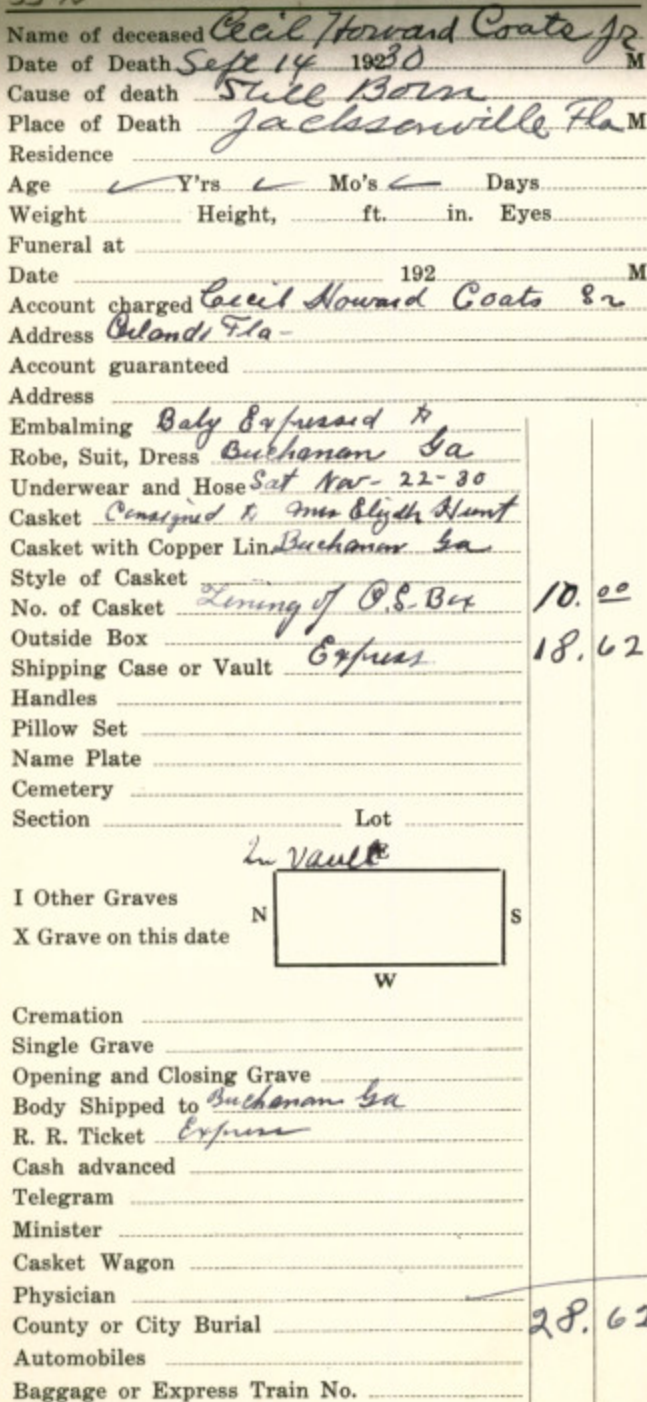 Name of deceased Cecil Howard Coats Jr
Date of Death Sept 14 19230 M
Cause of death Still Born
Place of Death Jacksonville Fla M
Residence
Age Y'rs Mo's Days
Weight Height, ft. in. Eyes
Funeral at
Date 192 M
Account charged Cecil Howard Coats Sr
Address Orlando Fla -
Account guaranteed
Address
Embalming Baby Expressed to
Robe, Suit, Dress Buchanan Ga
Underwear and Hose Sat Nov - 22 - 30
Casket Consigned to Mrs Hunt
Casket with Copper Lin. Buchanan Ga
Style of Casket
No. of Casket Lining of O.S. Box 10.00
Outside Box 18.62
Shipping Case or Vault Express
Handles
Pillow Set
Name Plate
Cemetery
Section Lot
In Vault E
I Other Graves
N S
X Grave on this date
W
Cremation
Single Grave
Opening and Closing Grave
Body Shipped to Buchanan Ga
R. R. Ticket Express
Cash advanced
Telegram
Minister
Casket Wagon
Physician
County or City Burial 28.62
Automobiles
Baggage or Express Train No.